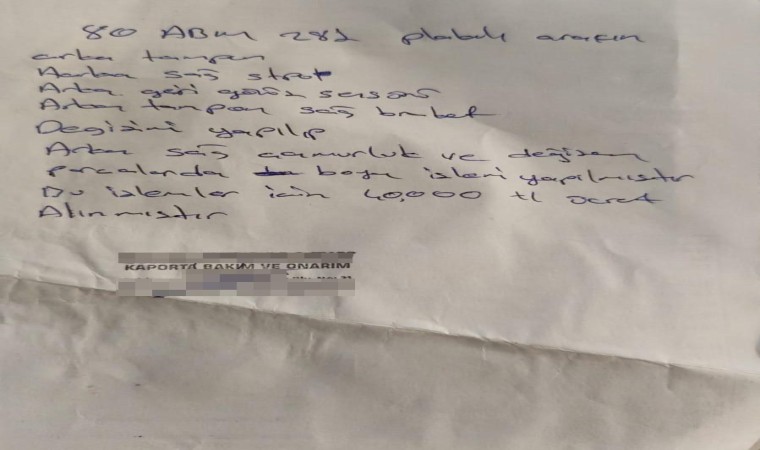 80 ABM 282 plakalı aracın
arka tampon
Arka sağ stop
Arka geri görüş sensörü
Arka tampon sağ braket
Degişimi yapılıp
Arka sağ çamurluk ve değişen
parcalarda boya işleri yapılmıştır
Bu işlemler icin 40,000 tl ücret
Alınmıştır
KAPORTA BAKIM VE ONARIM